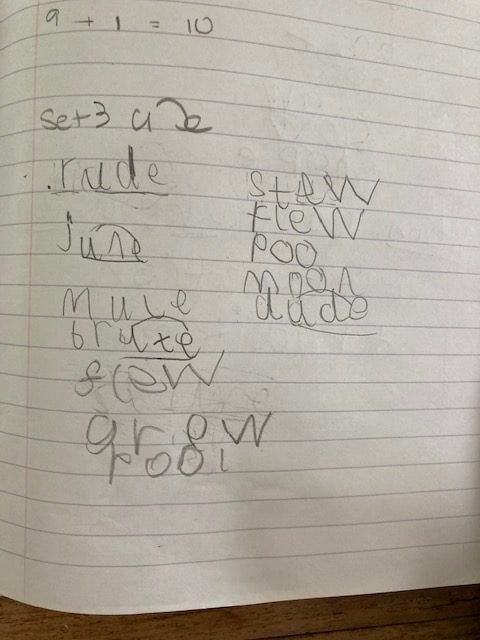 9 + 1 = 10
set 3 u e
.rude
june
Mule
brute
flew
grew
pool
stew
flew
poo
moon
dude